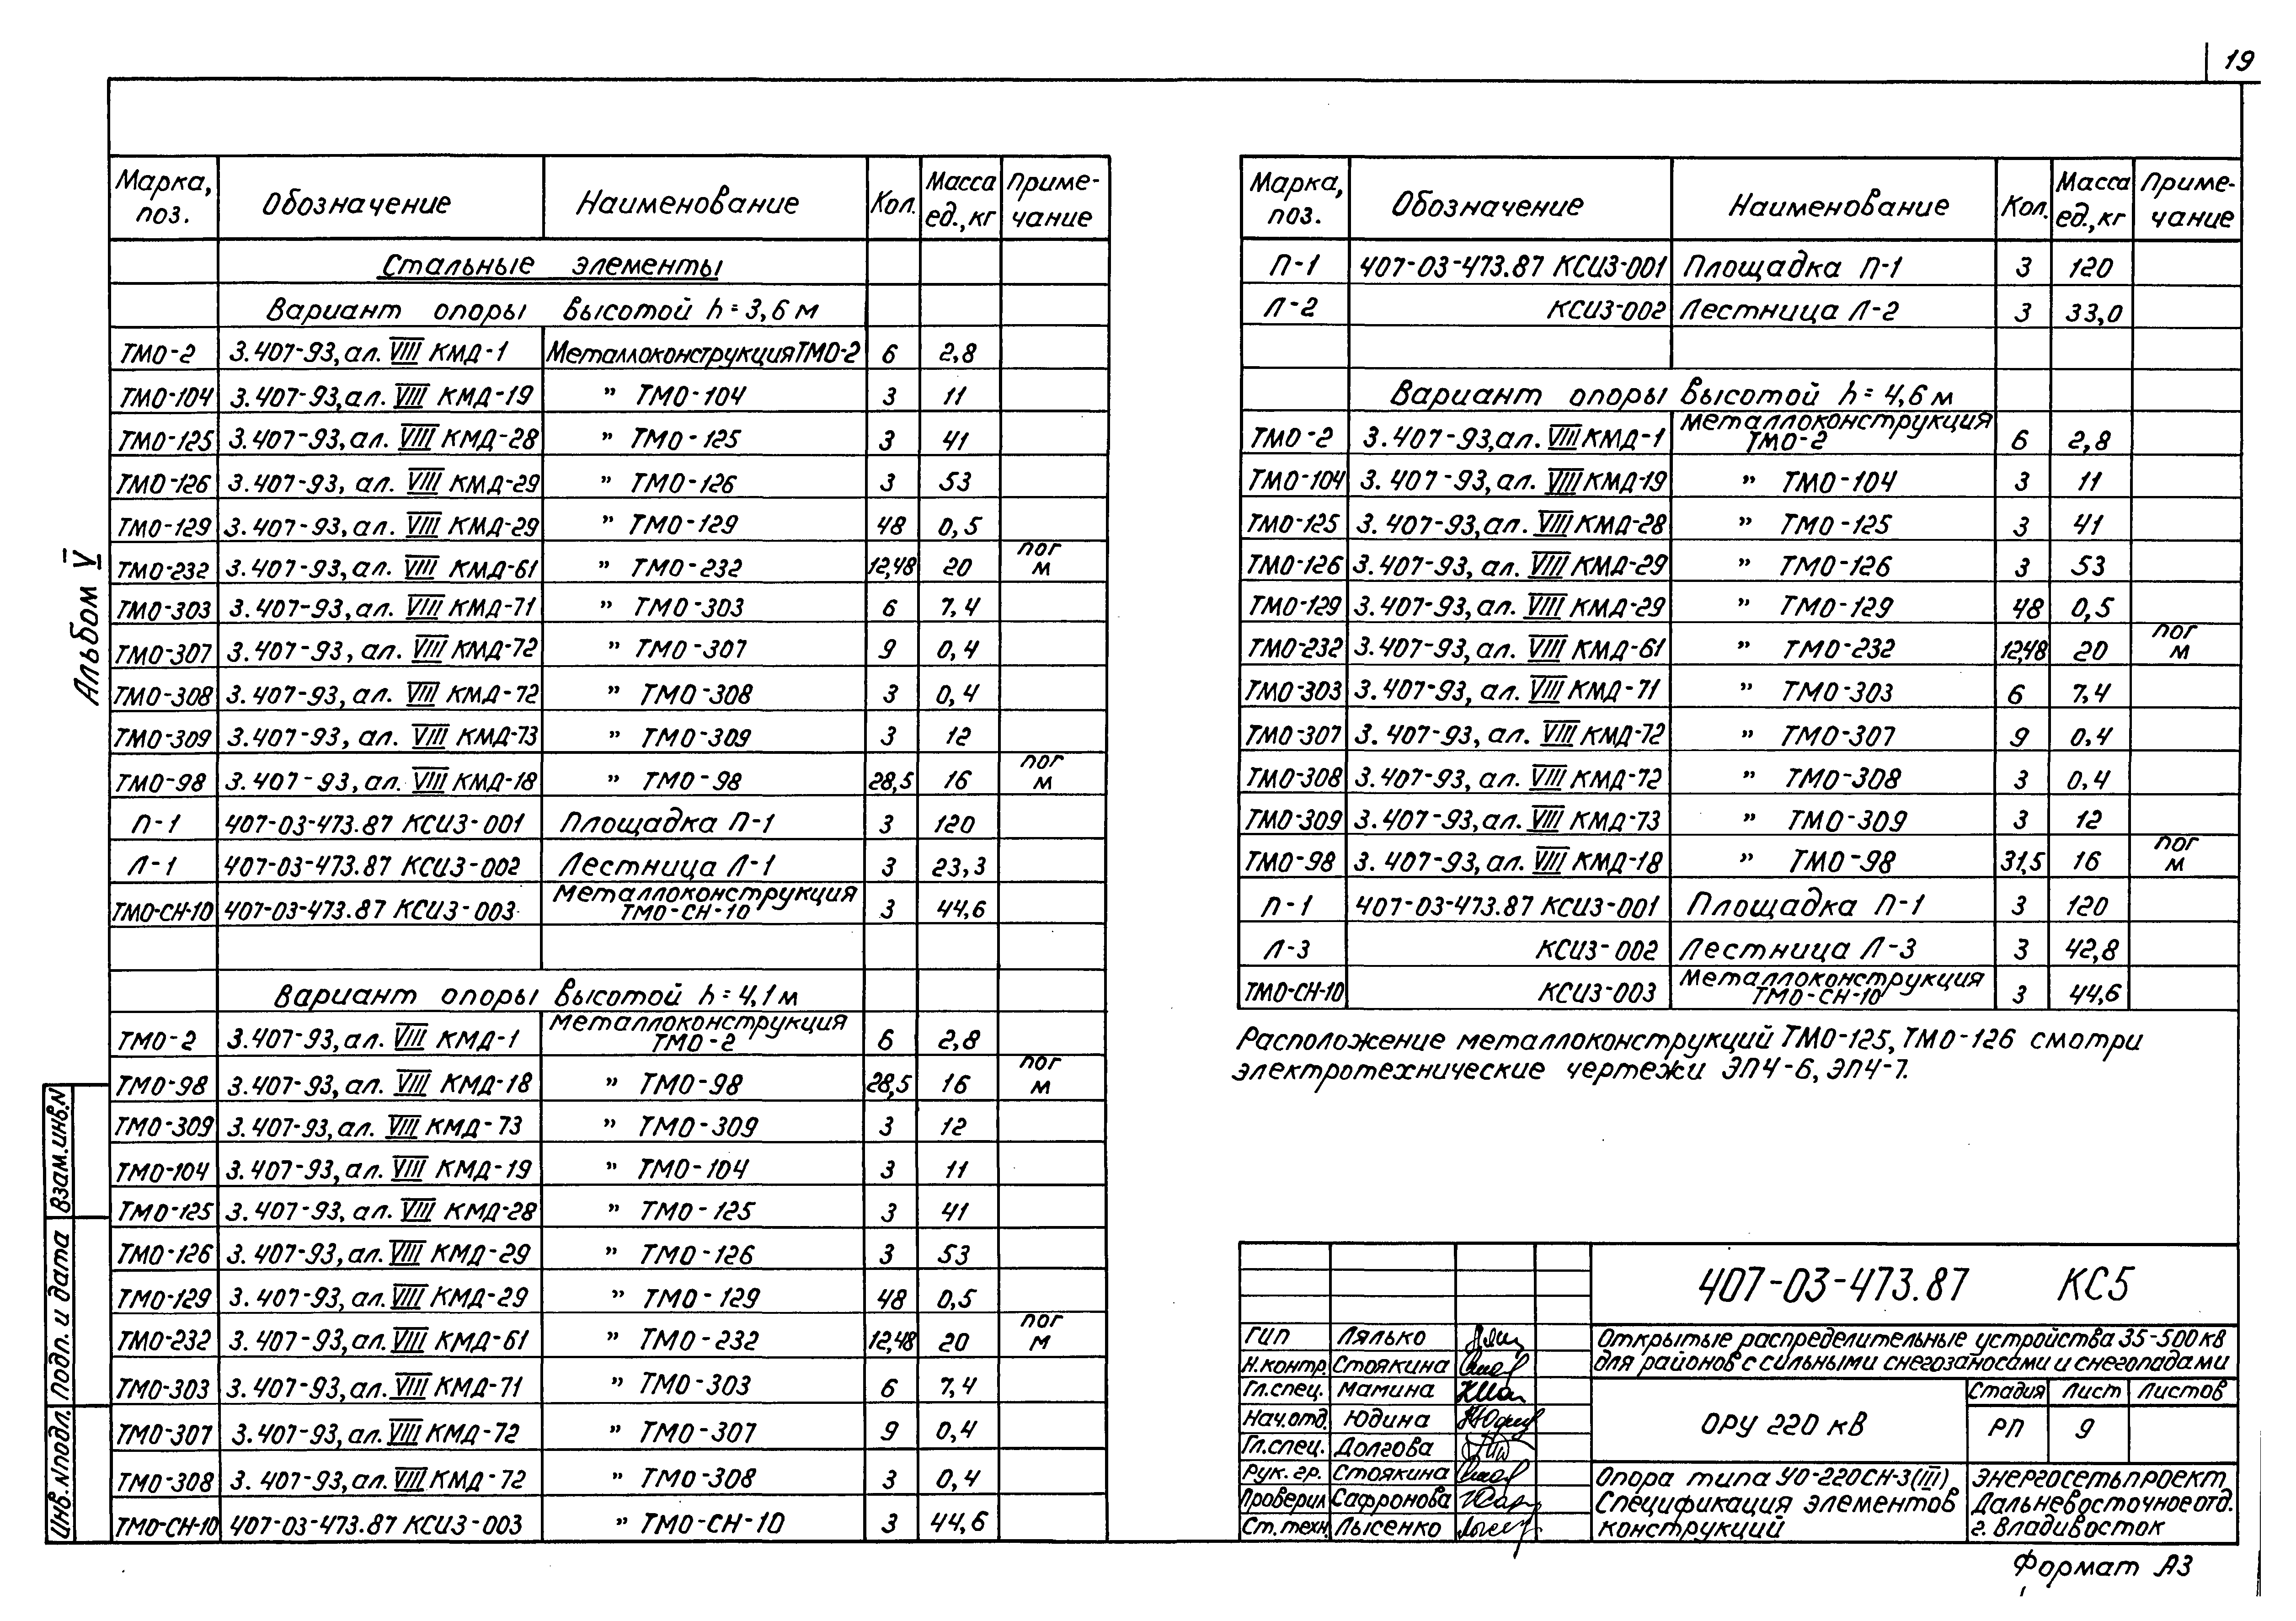 19
Альбом V
Марка, поз. Обозначение Наименование Кол. Масса ед., кг Приме-чание
Стальные элементы
Вариант опоры высотой h=3,6м
ТМО-2 3.407-93, ал. VIII КМД-1 Металлоконструкция ТМО-2 6 2,8
ТМО-104 3.407-93, ал. VIII КМД-19 " ТМО-104 3 11
ТМО-125 3.407-93, ал. VIII КМД-28 " ТМО-125 3 41
ТМО-126 3.407-93, ал. VIII КМД-29 " ТМО-126 3 53
ТМО-129 3.407-93, ал. VIII КМД-29 " ТМО-129 48 0,5
ТМО-232 3.407-93, ал. VIII КМД-61 " ТМО-232 12,48 20 пог м
ТМО-303 3.407-93, ал. VIII КМД-71 " ТМО-303 6 7,4
ТМО-307 3.407-93, ал. VIII КМД-72 " ТМО-307 9 0,4
ТМО-308 3.407-93, ал. VIII КМД-72 " ТМО-308 3 0,4
ТМО-309 3.407-93, ал. VIII КМД-73 " ТМО-309 3 12
ТМО-98 3.407-93, ал. VIII КМД-18 " ТМО-98 28,5 16 пог м
П-1 407-03-473.87 КСИЗ-001 Площадка П-1 3 120
Л-1 407-03-473.87 КСИЗ-002 Лестница Л-1 3 23,3
ТМО-СН-10 407-03-473.87 КСИЗ-003 Металлоконструкция ТМО-СН-10 3 44,6
Вариант опоры высотой h=4,1м
ТМО-2 3.407-93, ал. VIII КМД-1 Металлоконструкция ТМО-2 6 2,8
ТМО-98 3.407-93, ал. VIII КМД-18 " ТМО-98 28,5 16 пог м
ТМО-309 3.407-93, ал. VIII КМД-73 " ТМО-309 3 12
ТМО-104 3.407-93, ал. VIII КМД-19 " ТМО-104 3 11
ТМО-125 3.407-93, ал. VIII КМД-28 " ТМО-125 3 41
ТМО-126 3.407-93, ал. VIII КМД-29 " ТМО-126 3 53
ТМО-129 3.407-93, ал. VIII КМД-29 " ТМО-129 48 0,5
ТМО-232 3.407-93, ал. VIII КМД-61 " ТМО-232 12,48 20 пог м
ТМО-303 3.407-93, ал. VIII КМД-71 " ТМО-303 6 7,4
ТМО-307 3.407-93, ал. VIII КМД-72 " ТМО-307 9 0,4
ТМО-308 3.407-93, ал. VIII КМД-72 " ТМО-308 3 0,4
ТМО-СН-10 407-03-473.87 КСИЗ-003 " ТМО-СН-10 3 44,6
Марка, поз. Обозначение Наименование Кол. Масса ед., кг Приме-чание
П-1 407-03-473.87 КСИЗ-001 Площадка П-1 3 120
Л-2 КСИЗ-002 Лестница Л-2 3 33,0
Вариант опоры высотой h=4,6м
ТМО-2 3.407-93, ал. VIII КМД-1 Металлоконструкция ТМО-2 6 2,8
ТМО-104 3.407-93, ал. VIII КМД-19 " ТМО-104 3 11
ТМО-125 3.407-93, ал. VIII КМД-28 " ТМО-125 3 41
ТМО-126 3.407-93, ал. VIII КМД-29 " ТМО-126 3 53
ТМО-129 3.407-93, ал. VIII КМД-29 " ТМО-129 48 0,5
ТМО-232 3.407-93, ал. VIII КМД-61 " ТМО-232 12,48 20 пог м
ТМО-303 3.407-93, ал. VIII КМД-71 " ТМО-303 6 7,4
ТМО-307 3.407-93, ал. VIII КМД-72 " ТМО-307 9 0,4
ТМО-308 3.407-93, ал. VIII КМД-72 " ТМО-308 3 0,4
ТМО-309 3.407-93, ал. VIII КМД-73 " ТМО-309 3 12
ТМО-98 3.407-93, ал. VIII КМД-18 " ТМО-98 31,5 16 пог м
П-1 407-03-473.87 КСИЗ-001 Площадка П-1 3 120
Л-3 КСИЗ-002 Лестница Л-3 3 42,8
ТМО-СН-10 КСИЗ-003 Металлоконструкция ТМО-СН-10 3 44,6
Расположение металлоконструкций ТМО-125, ТМО-126 смотри
электротехнические чертежи ЭП4-6, ЭП4-7.
Взам.инв.N
Подп. и дата
Инв.Nподл.
407-03-473.87 КС5
ГИП Лялько
Н.контр. Стоякина
Гл.спец. Мамина
Нач.отд. Юдина
Гл.спец. Долгова
Рук. гр. Стоякина
Проверил Сафронова
Ст. техн. Лысенко
Открытые распределительные устройства 35-500кв
для районов с сильными снегозаносами и снегопадами
ОРУ 220 кВ
Стадия Лист Листов
РП 9
Опора типа УО-220СН-3(III).
Спецификация элементов
конструкций
Энергосетьпроект
Дальневосточное отд.
г. Владивосток
Формат А3